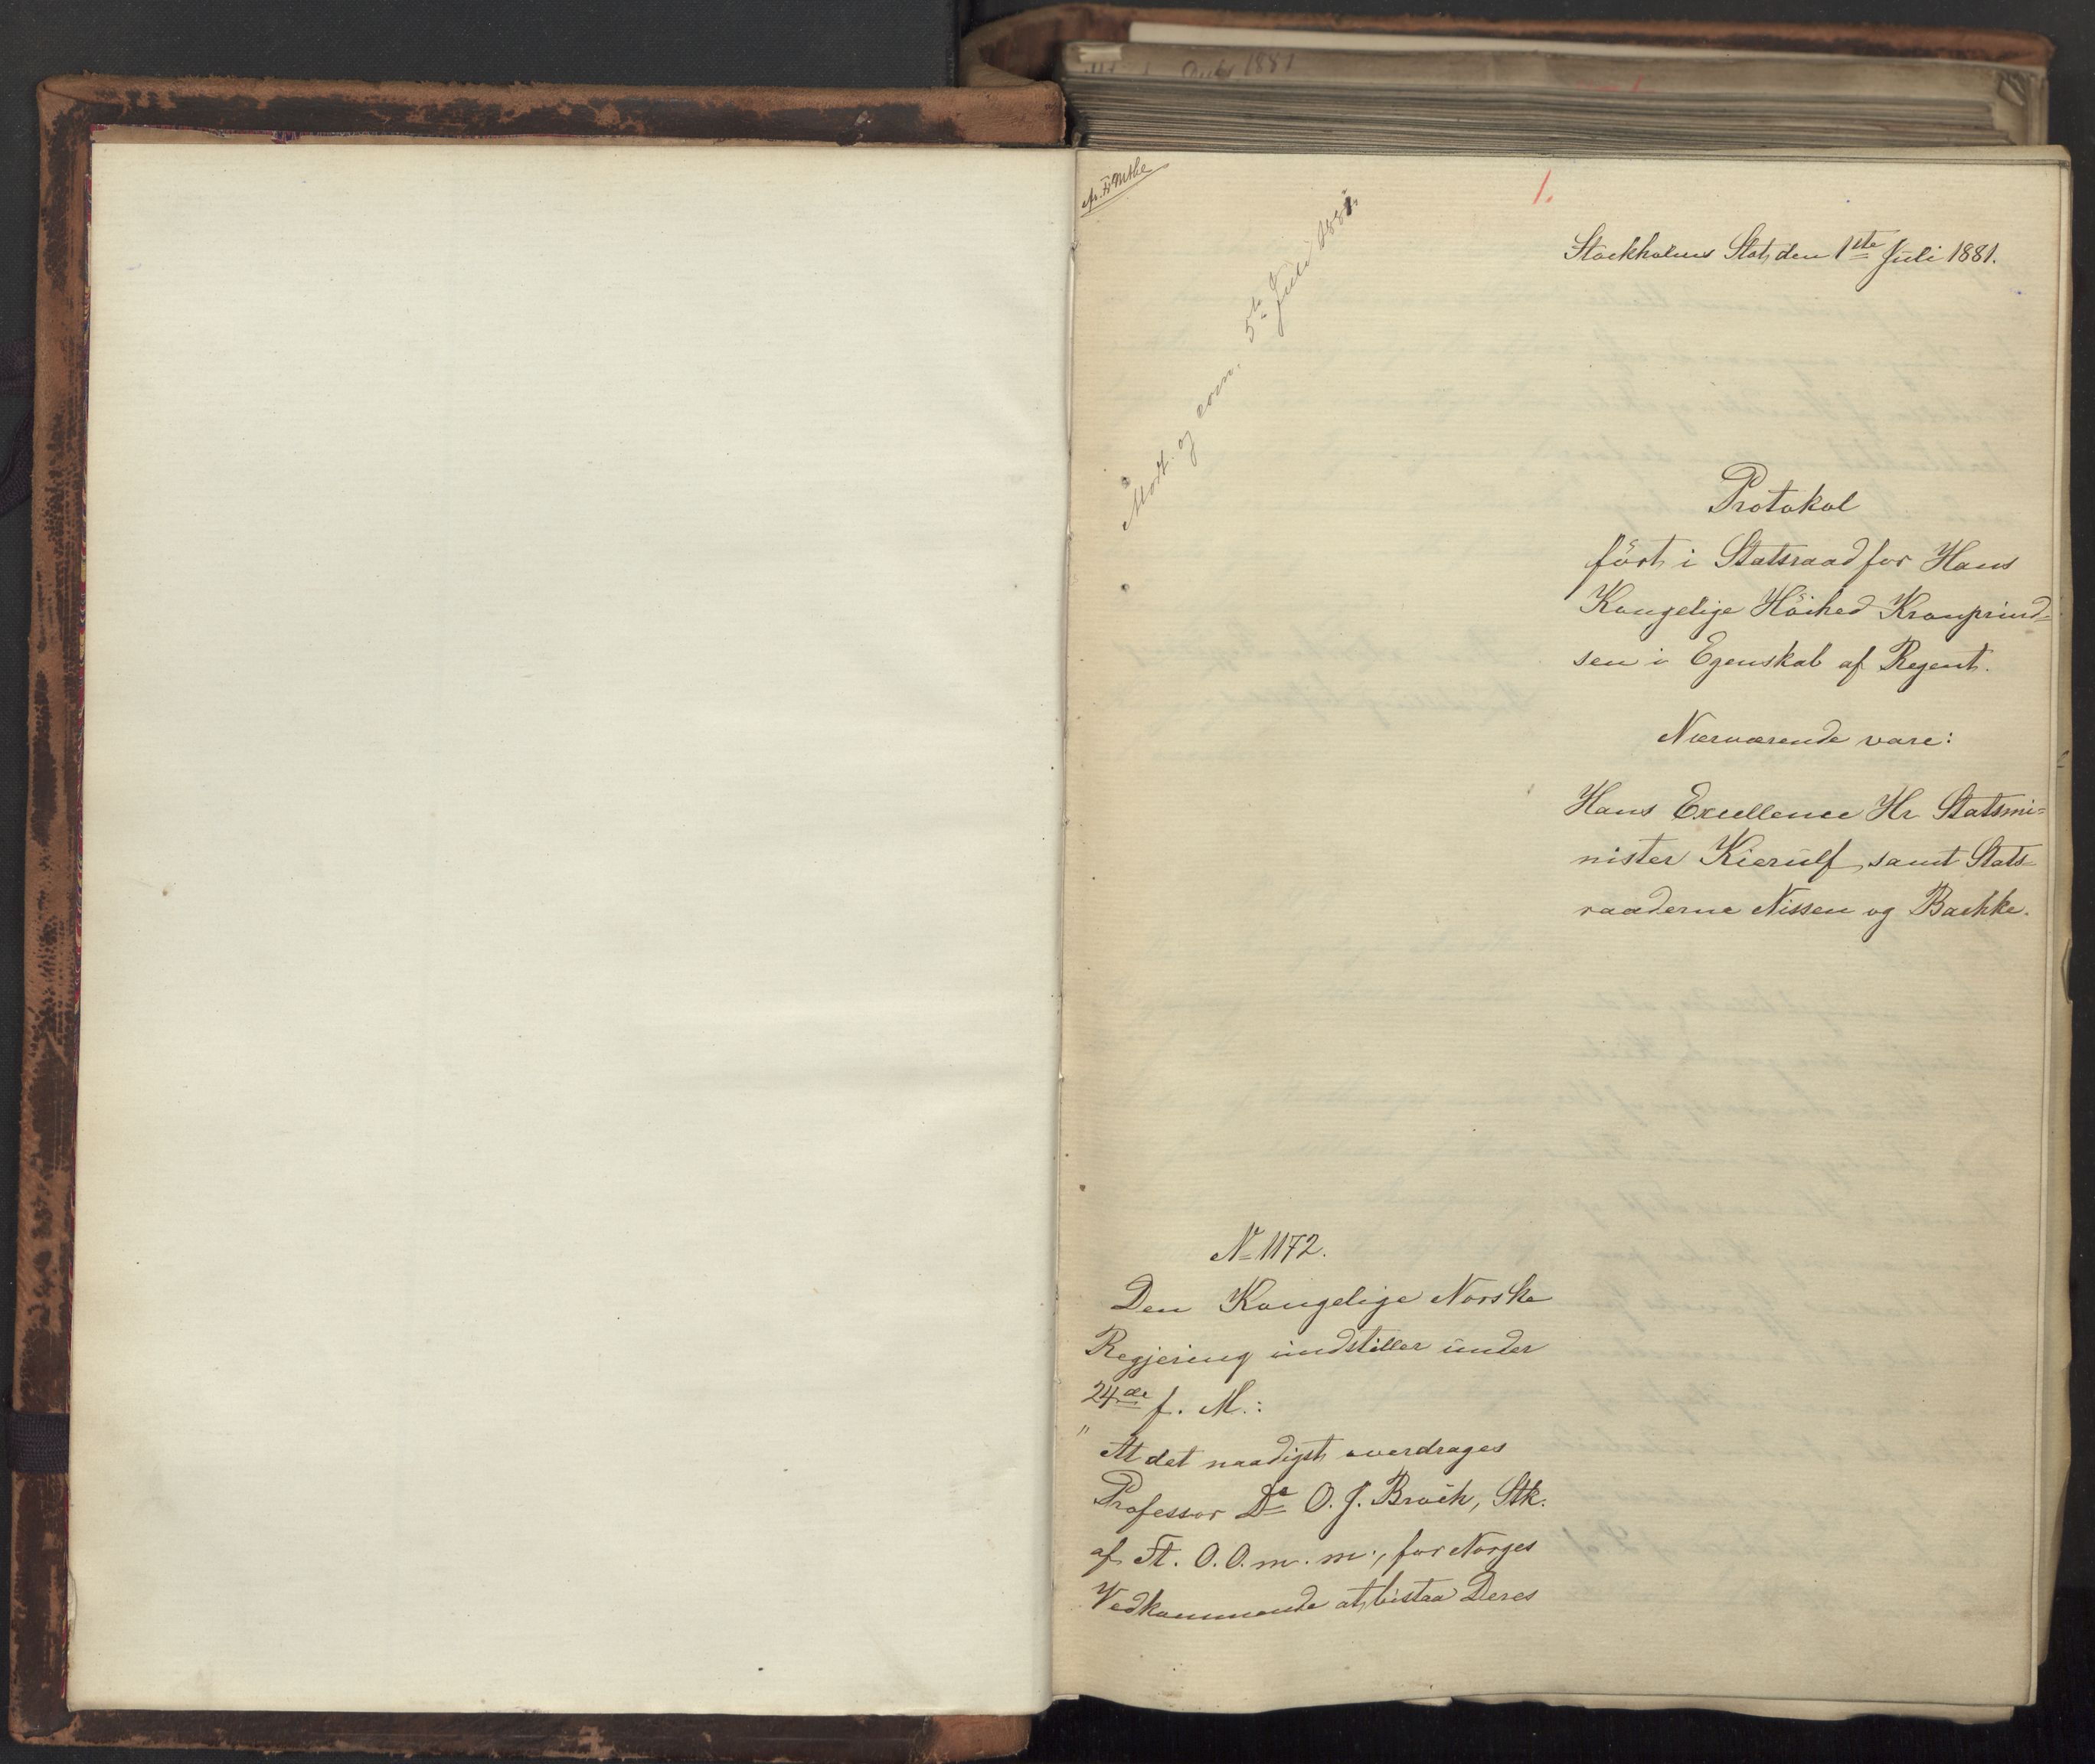 Juli 1881
1.
Modt. og exom. 5te Juli 1881.
Stockholms Slot, den 1ste Juli 1881.
Protokol
ført i Statsraad for Hans
Kongelige Höihed Kronprind-
sen i Egenskab af Regent.
Nærværende vare:
Hans Excellence Hr. Statsmi-
nister Kierulf, samt Stats-
raaderne Nissen og Bachke.
No 1172.
Den Kongelige Norske
Regjering indstiller under
24de f. M.:
"At det naadigst overdrages
Professor Dr O. J. Broch, Stk.
af St. O. O. m. m., for Norges
Vedkommende at bistaa Deres